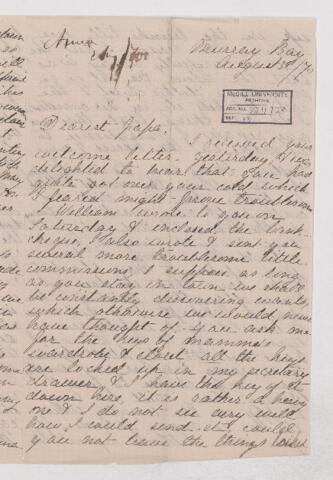 Anna
Murray Bay
August 8th/70
McGILL UNIVERSITY
ARCHIVES
ACC. NO.
REF.
Dearest Papa,
I received your
welcome letter yesterday & was
delighted to hear that you had
quite got over your cold which
I feared might prove troublesome
William wrote to you on
Saturday & enclosed the bank
cheque, I also wrote & sent you
several more troublesome little
commissions. I suppose as long
as you stay in town we shall
be constantly discovering wants
which otherwise we would never
have thought of. You ask me
for the keys of mamma's
wardrobe & closet all the keys
are locked up in my secretary
drawer & I have the key of it
down here, it is rather a heavy
one & I do not see very well
how I could send it. Could
you not leave the things